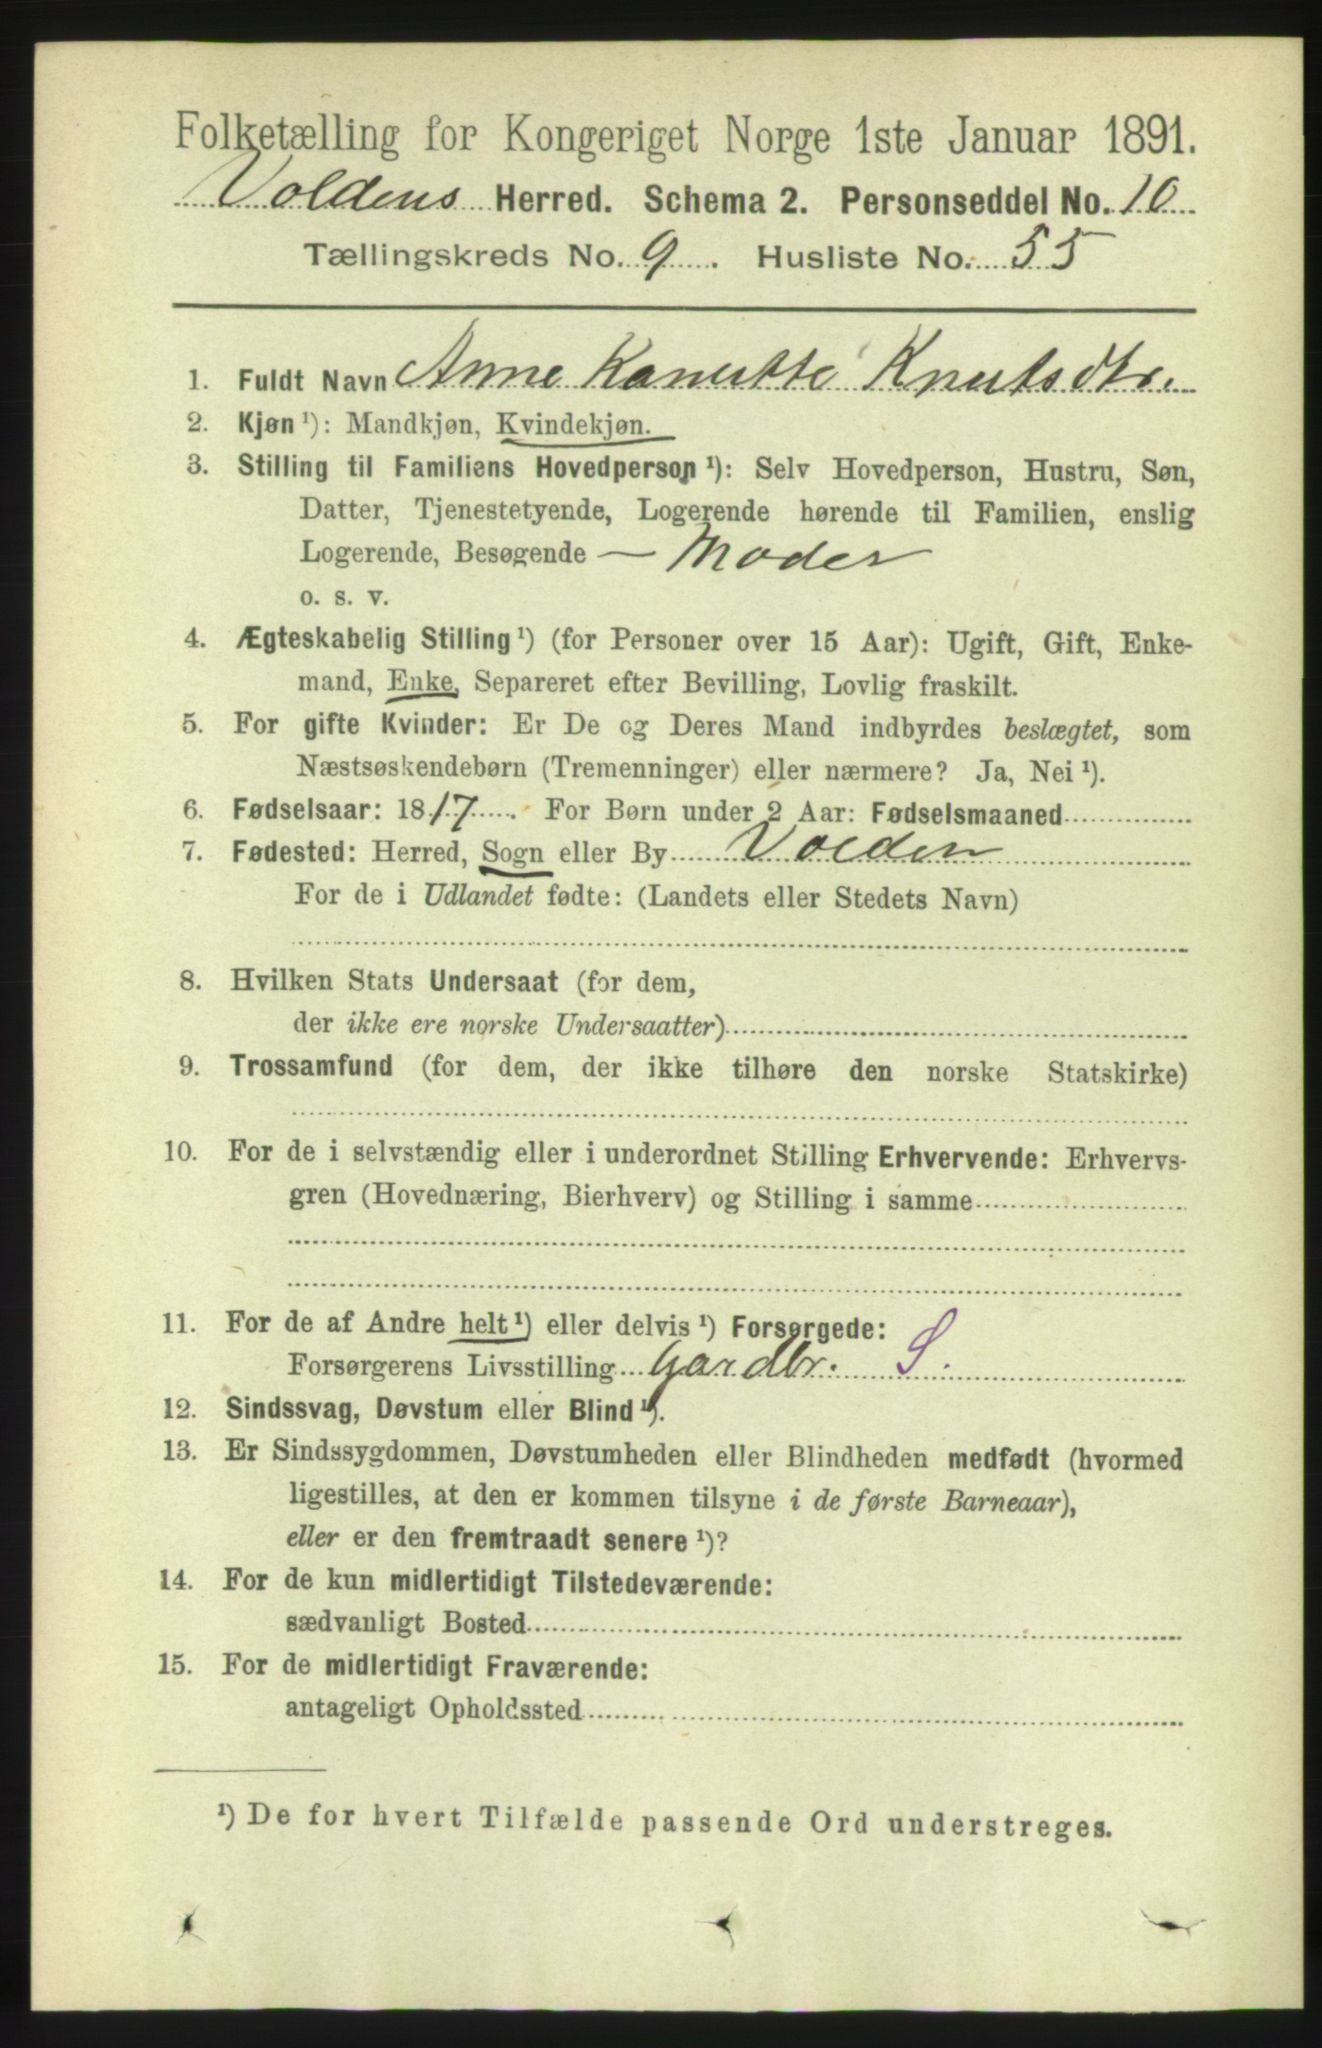 Folketælling for Kongeriget Norge 1ste Januar 1891.
Voldens Herred. Schema 2. Personseddel No. 10
Tællingskreds No. 9. Husliste No. 55
1. Fuldt Navn Anne Kanutte Knutsdtr.
2. Kjøn ¹): Mandkjøn, Kvindekjøn.
3. Stilling til Familiens Hovedperson ¹): Selv Hovedperson, Hustru, Søn,
Datter, Tjenestetyende, Logerende hørende til Familien, enslig
Logerende, Besøgende — Moder
o. s. v.
4. Ægteskabelig Stilling ¹) (for Personer over 15 Aar): Ugift, Gift, Enke-
mand, Enke, Separeret efter Bevilling, Lovlig fraskilt.
5. For gifte Kvinder: Er De og Deres Mand indbyrdes beslægtet, som
Næstsøskendebørn (Tremenninger) eller nærmere? Ja, Nei ¹).
6. Fødselsaar: 1817. For Børn under 2 Aar: Fødselsmaaned
7. Fødested: Herred, Sogn eller By Volden
For de i Udlandet fødte: (Landets eller Stedets Navn)
8. Hvilken Stats Undersaat (for dem,
der ikke ere norske Undersaatter)
9. Trossamfund (for dem, der ikke tilhøre den norske Statskirke)
10. For de i selvstændig eller i underordnet Stilling Erhvervende: Erhvervs-
gren (Hovednæring, Bierhverv) og Stilling i samme
11. For de af Andre helt ¹) eller delvis ¹) Forsørgede:
Forsørgerens Livsstilling Gardbr. S.
12. Sindssvag, Døvstum eller Blind ¹).
13. Er Sindssygdommen, Døvstumheden eller Blindheden medfødt (hvormed
ligestilles, at den er kommen tilsyne i de første Barneaar),
eller er den fremtraadt senere ¹)?
14. For de kun midlertidigt Tilstedeværende:
sædvanligt Bosted
15. For de midlertidigt Fraværende:
antageligt Opholdssted
¹) De for hvert Tilfælde passende Ord understreges.